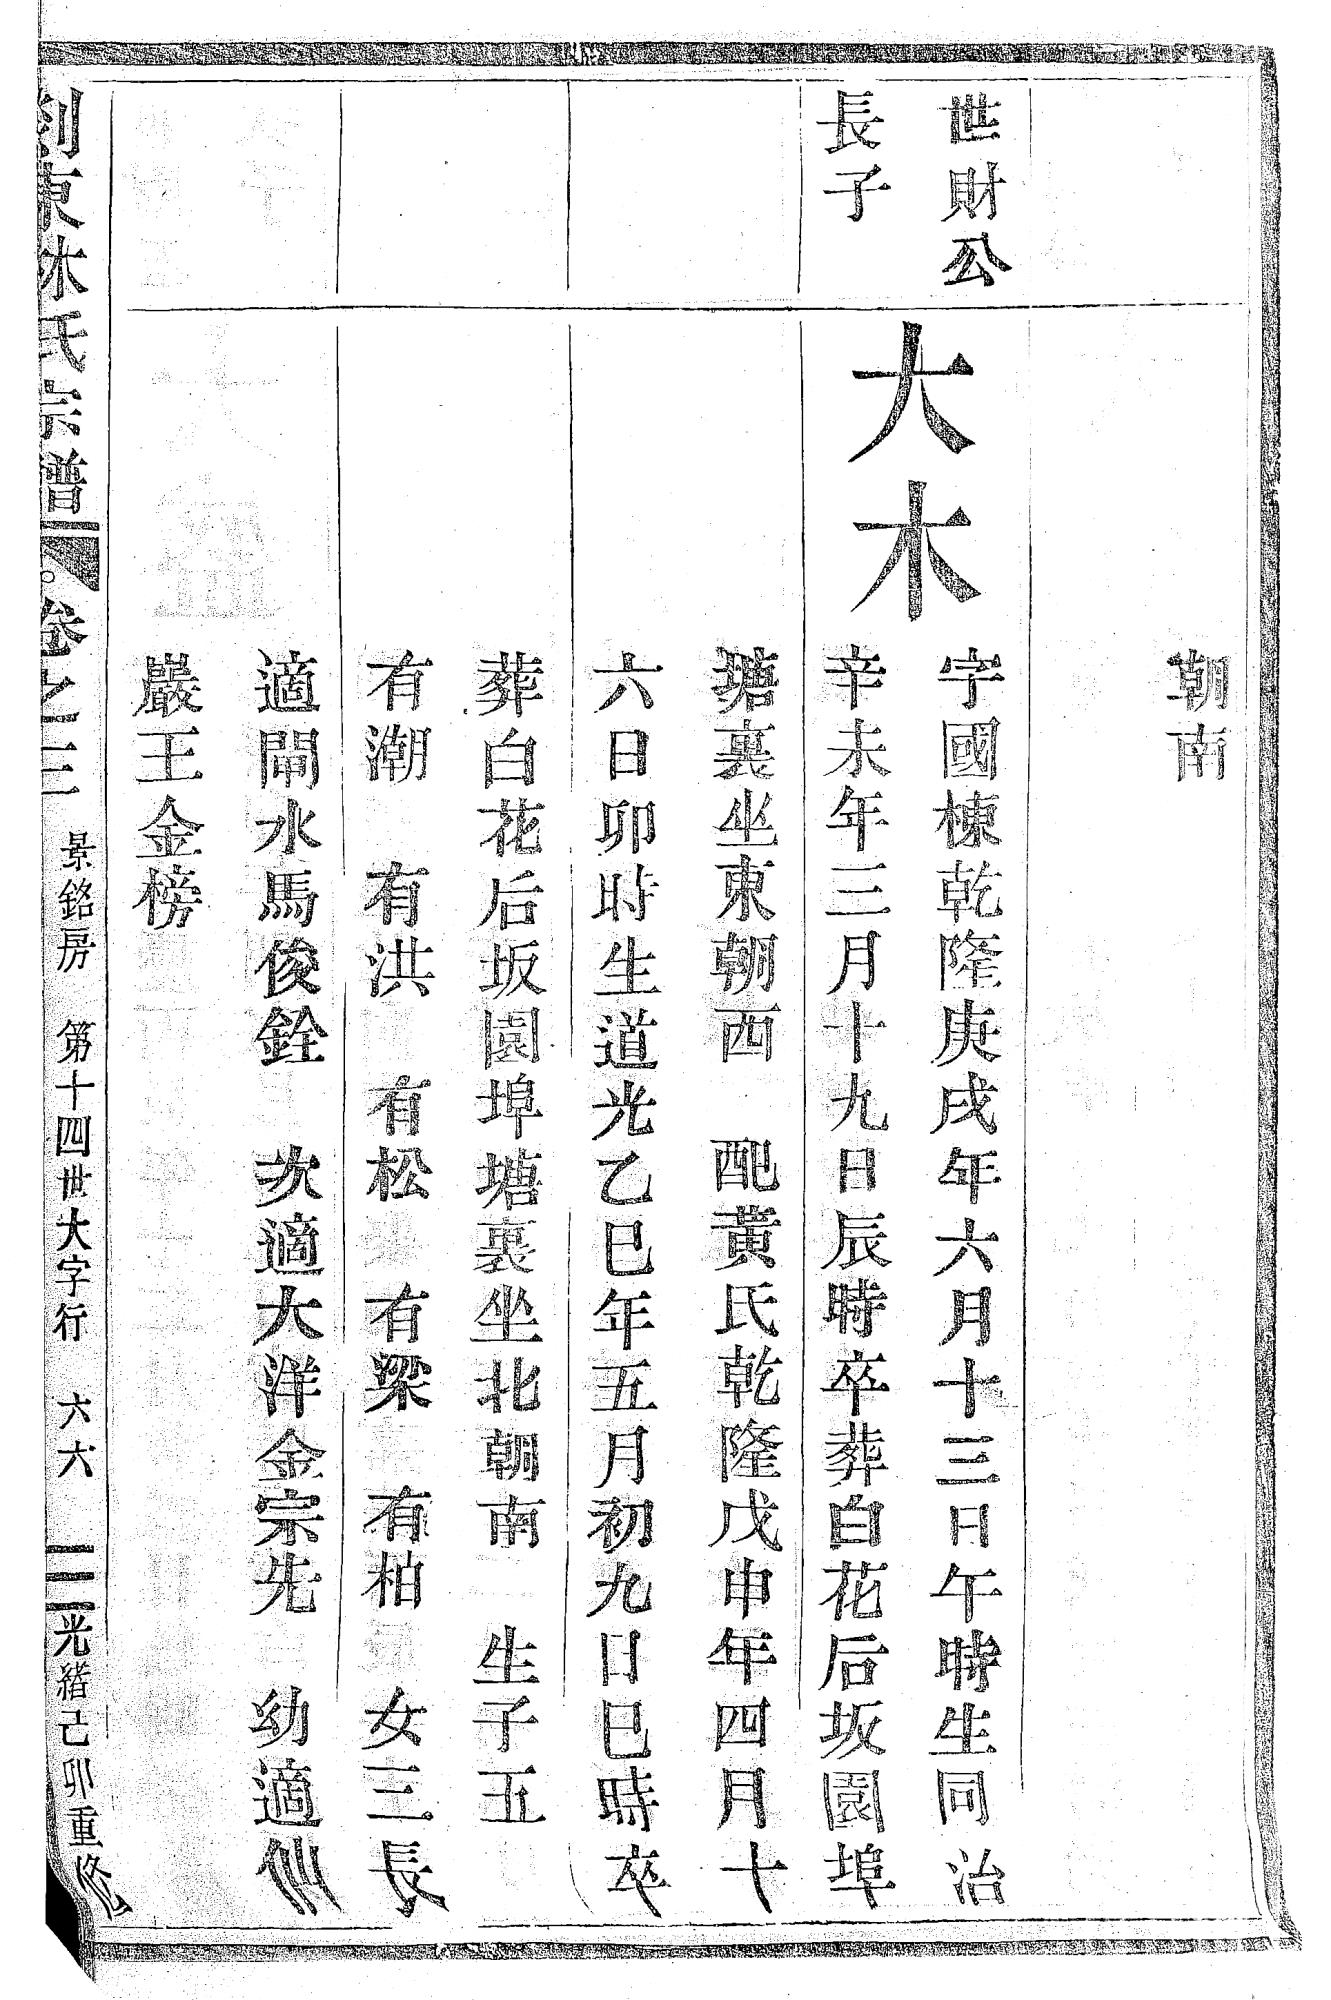 朝南
世財公
長子
大木
字國棟乾隆庚戌年六月十三日午時生同治
辛未年三月十九日辰時卒葬白花后坂園埠
塘裏坐東朝西 配黃氏乾隆戊申年四月十
六日卯時生道光乙巳年五月初九日巳時卒
葬白花后坂園埠塘裏坐北朝南 生子五
有潮 有洪 有松 有梁 有柏 女三長
適閘水馬俊銓 次適大洋金宗先 幼適仙
嚴王金榜
東林氏宗譜 卷之三 景銘房 第十四世大字行 六六 光緒己卯重修